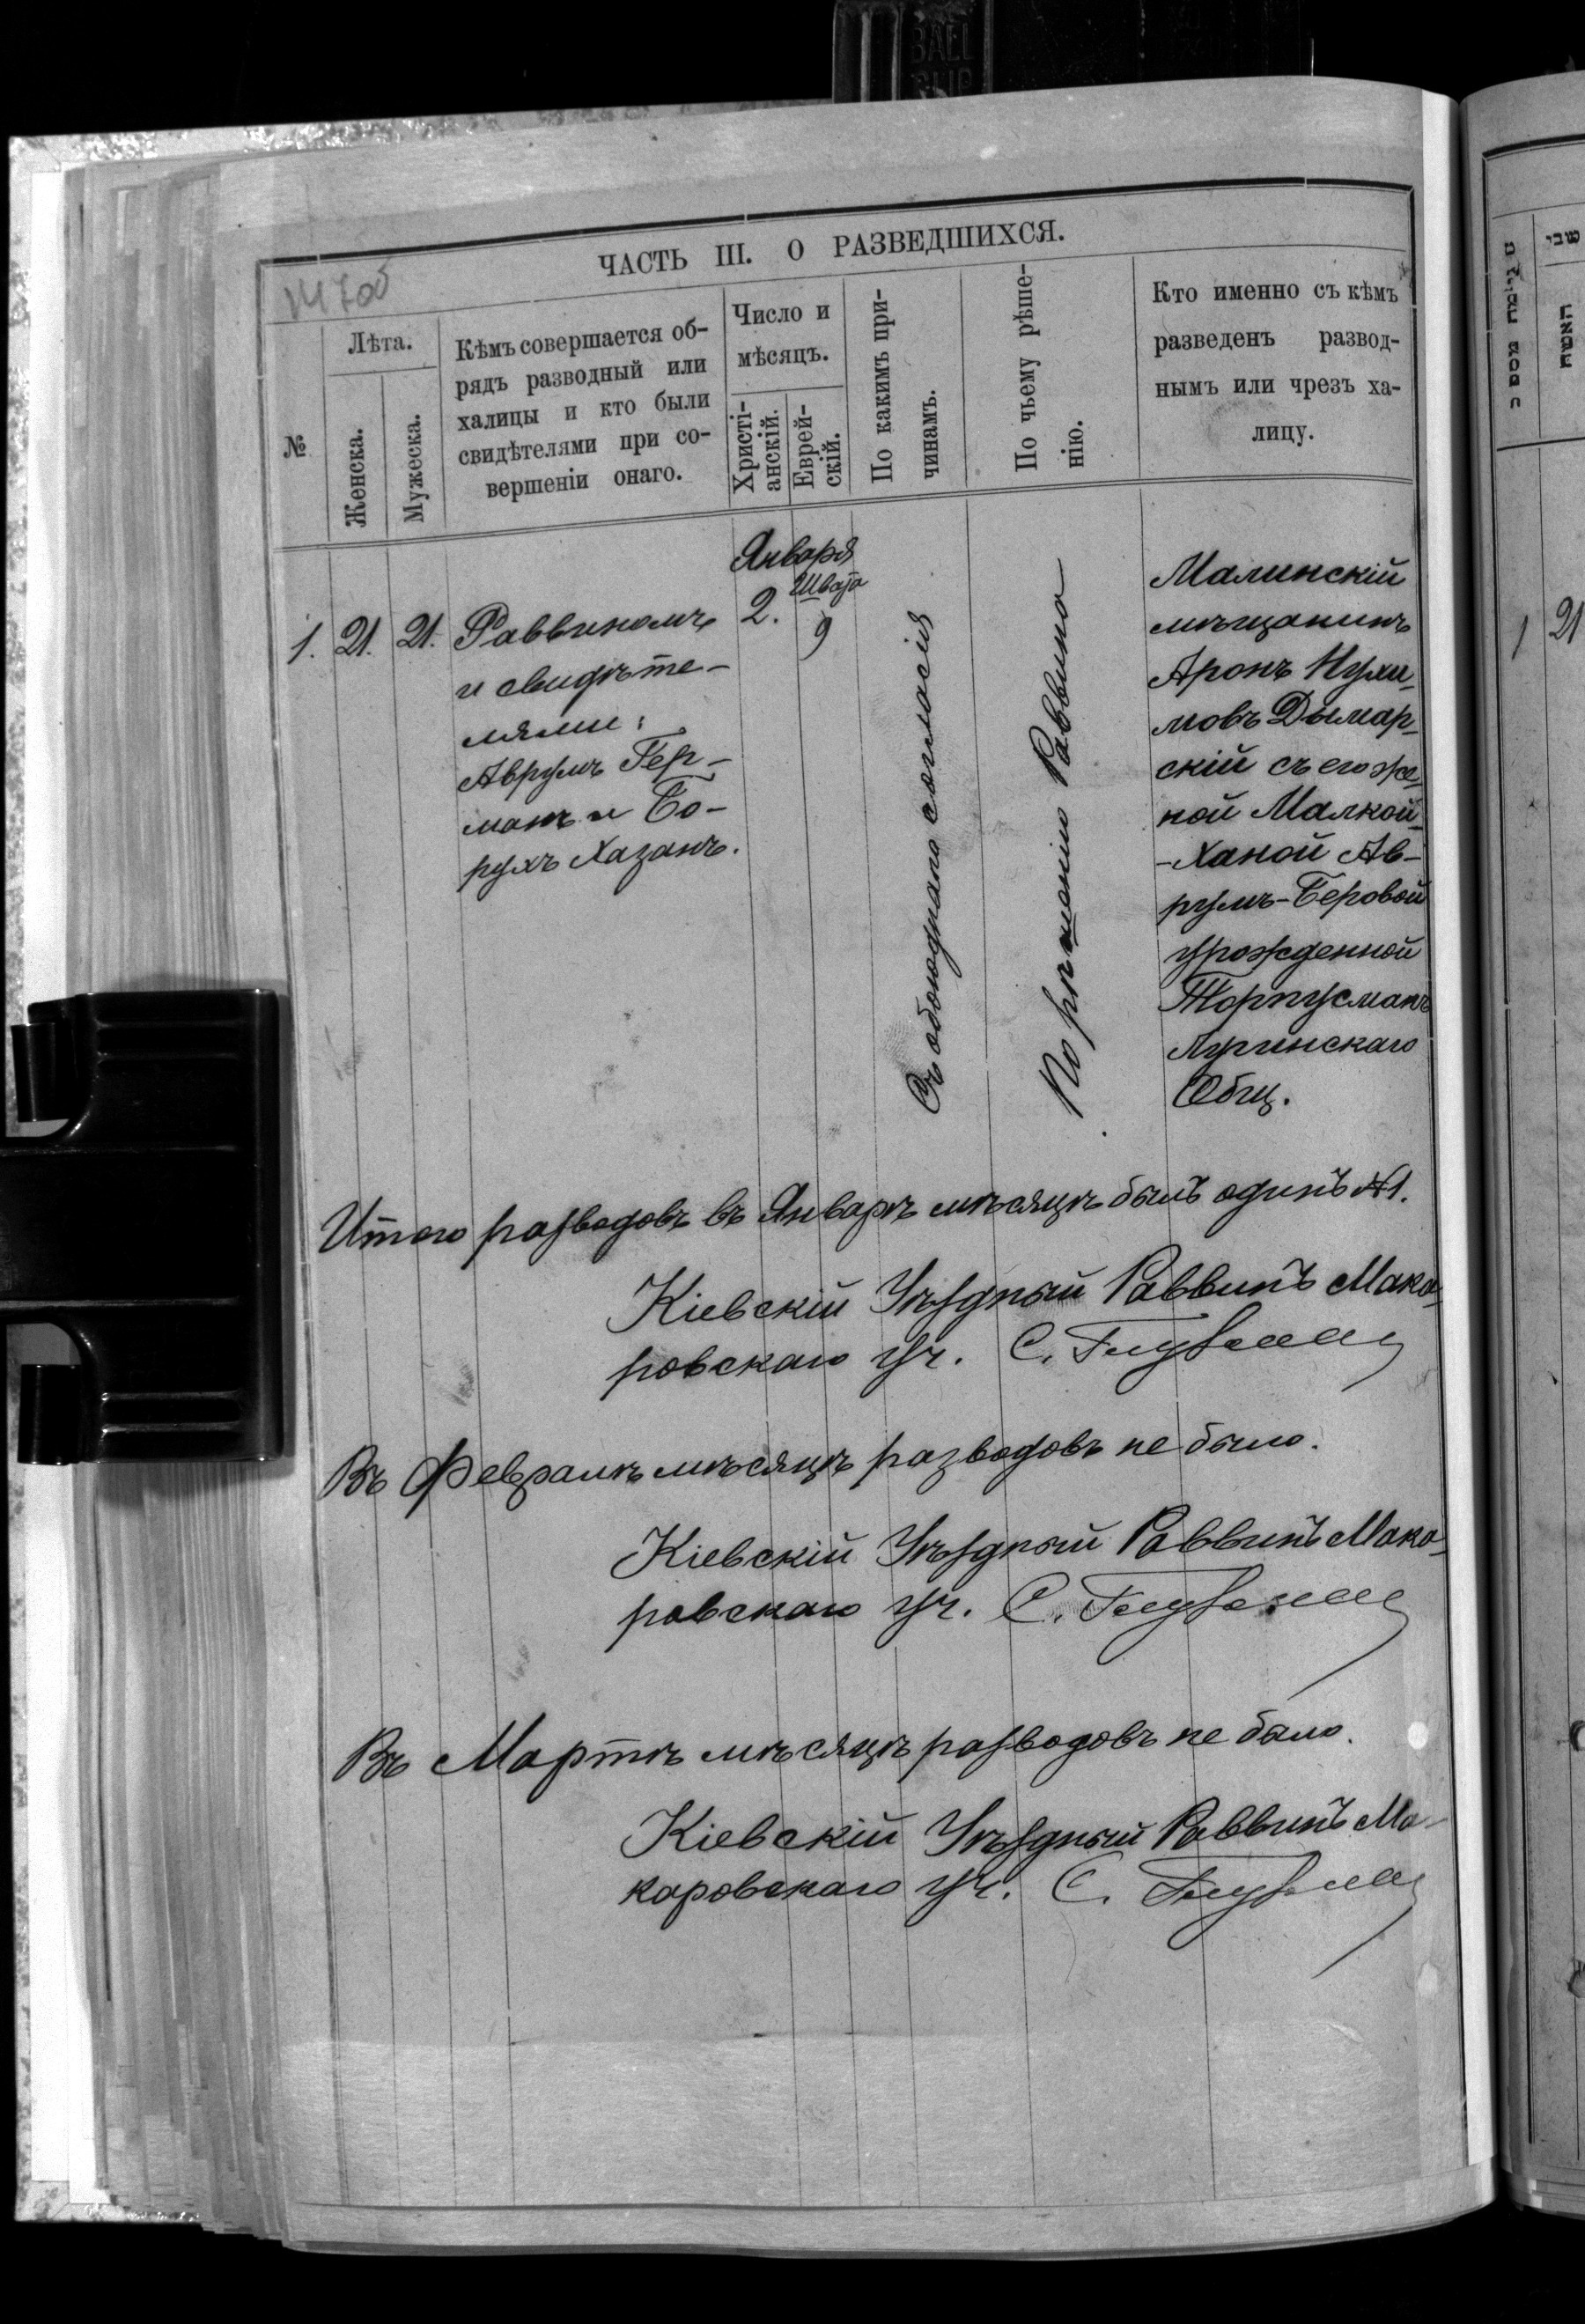 ЧАСТЬ III. О РАЗВЕДШИХСЯ.
№
Лѣта.
Женска.
Мужеска.
Кѣмъ совершается об-
рядъ разводный или
халицы и кто были
свидѣтелями при со-
вершеніи онаго.
Число и
мѣсяцъ.
Христі-
анскій.
Еврей-
скій.
По какимъ при-
чинамъ.
По чьему рѣше-
нію.
Кто именно съ кѣмъ
разведенъ развод-
нымъ или чрезъ ха-
лицу.
1.
21.
21.
Раввиномъ
и свидѣте-
лями:
Аврумъ Гер-
манъ и Бо-
рухъ Хазанъ.
Января
2.
Швата
9
Съ обоюднаго согласія
По рѣшенію Раввина
Малинскій
мѣщанинъ
Аронъ Нухи-
мовъ Дымар-
скій съ его же-
ной Малкой-
-Ханой Ав-
румъ-Беровой
урожденной
Торпусманъ
Лугинскаго
Общ.
Итого разводовъ въ Январѣ мѣсяцѣ былъ одинъ №1.
Кіевскій Уѣздный Раввинъ Мака-
ровскаго уч. С.
Въ Февралѣ мѣсяцѣ разводовъ не было.
Кіевскій Уѣздный Раввинъ Мака-
ровскаго уч. С.
Въ Мартѣ мѣсяцѣ разводовъ не было.
Кіевскій Уѣздный Раввинъ Ма-
каровскаго уч. С.
שבי
האשה
1
21